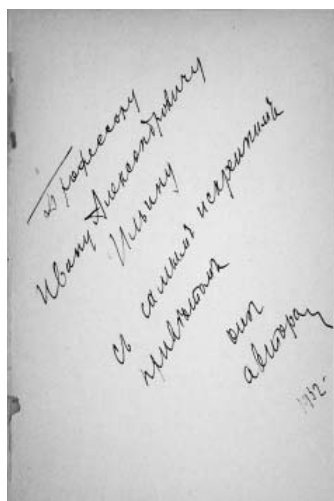 Профессору
Ивану Александровичу
Ильину
съ самымъ искреннимъ
приветомъ
отъ
автора
1932.